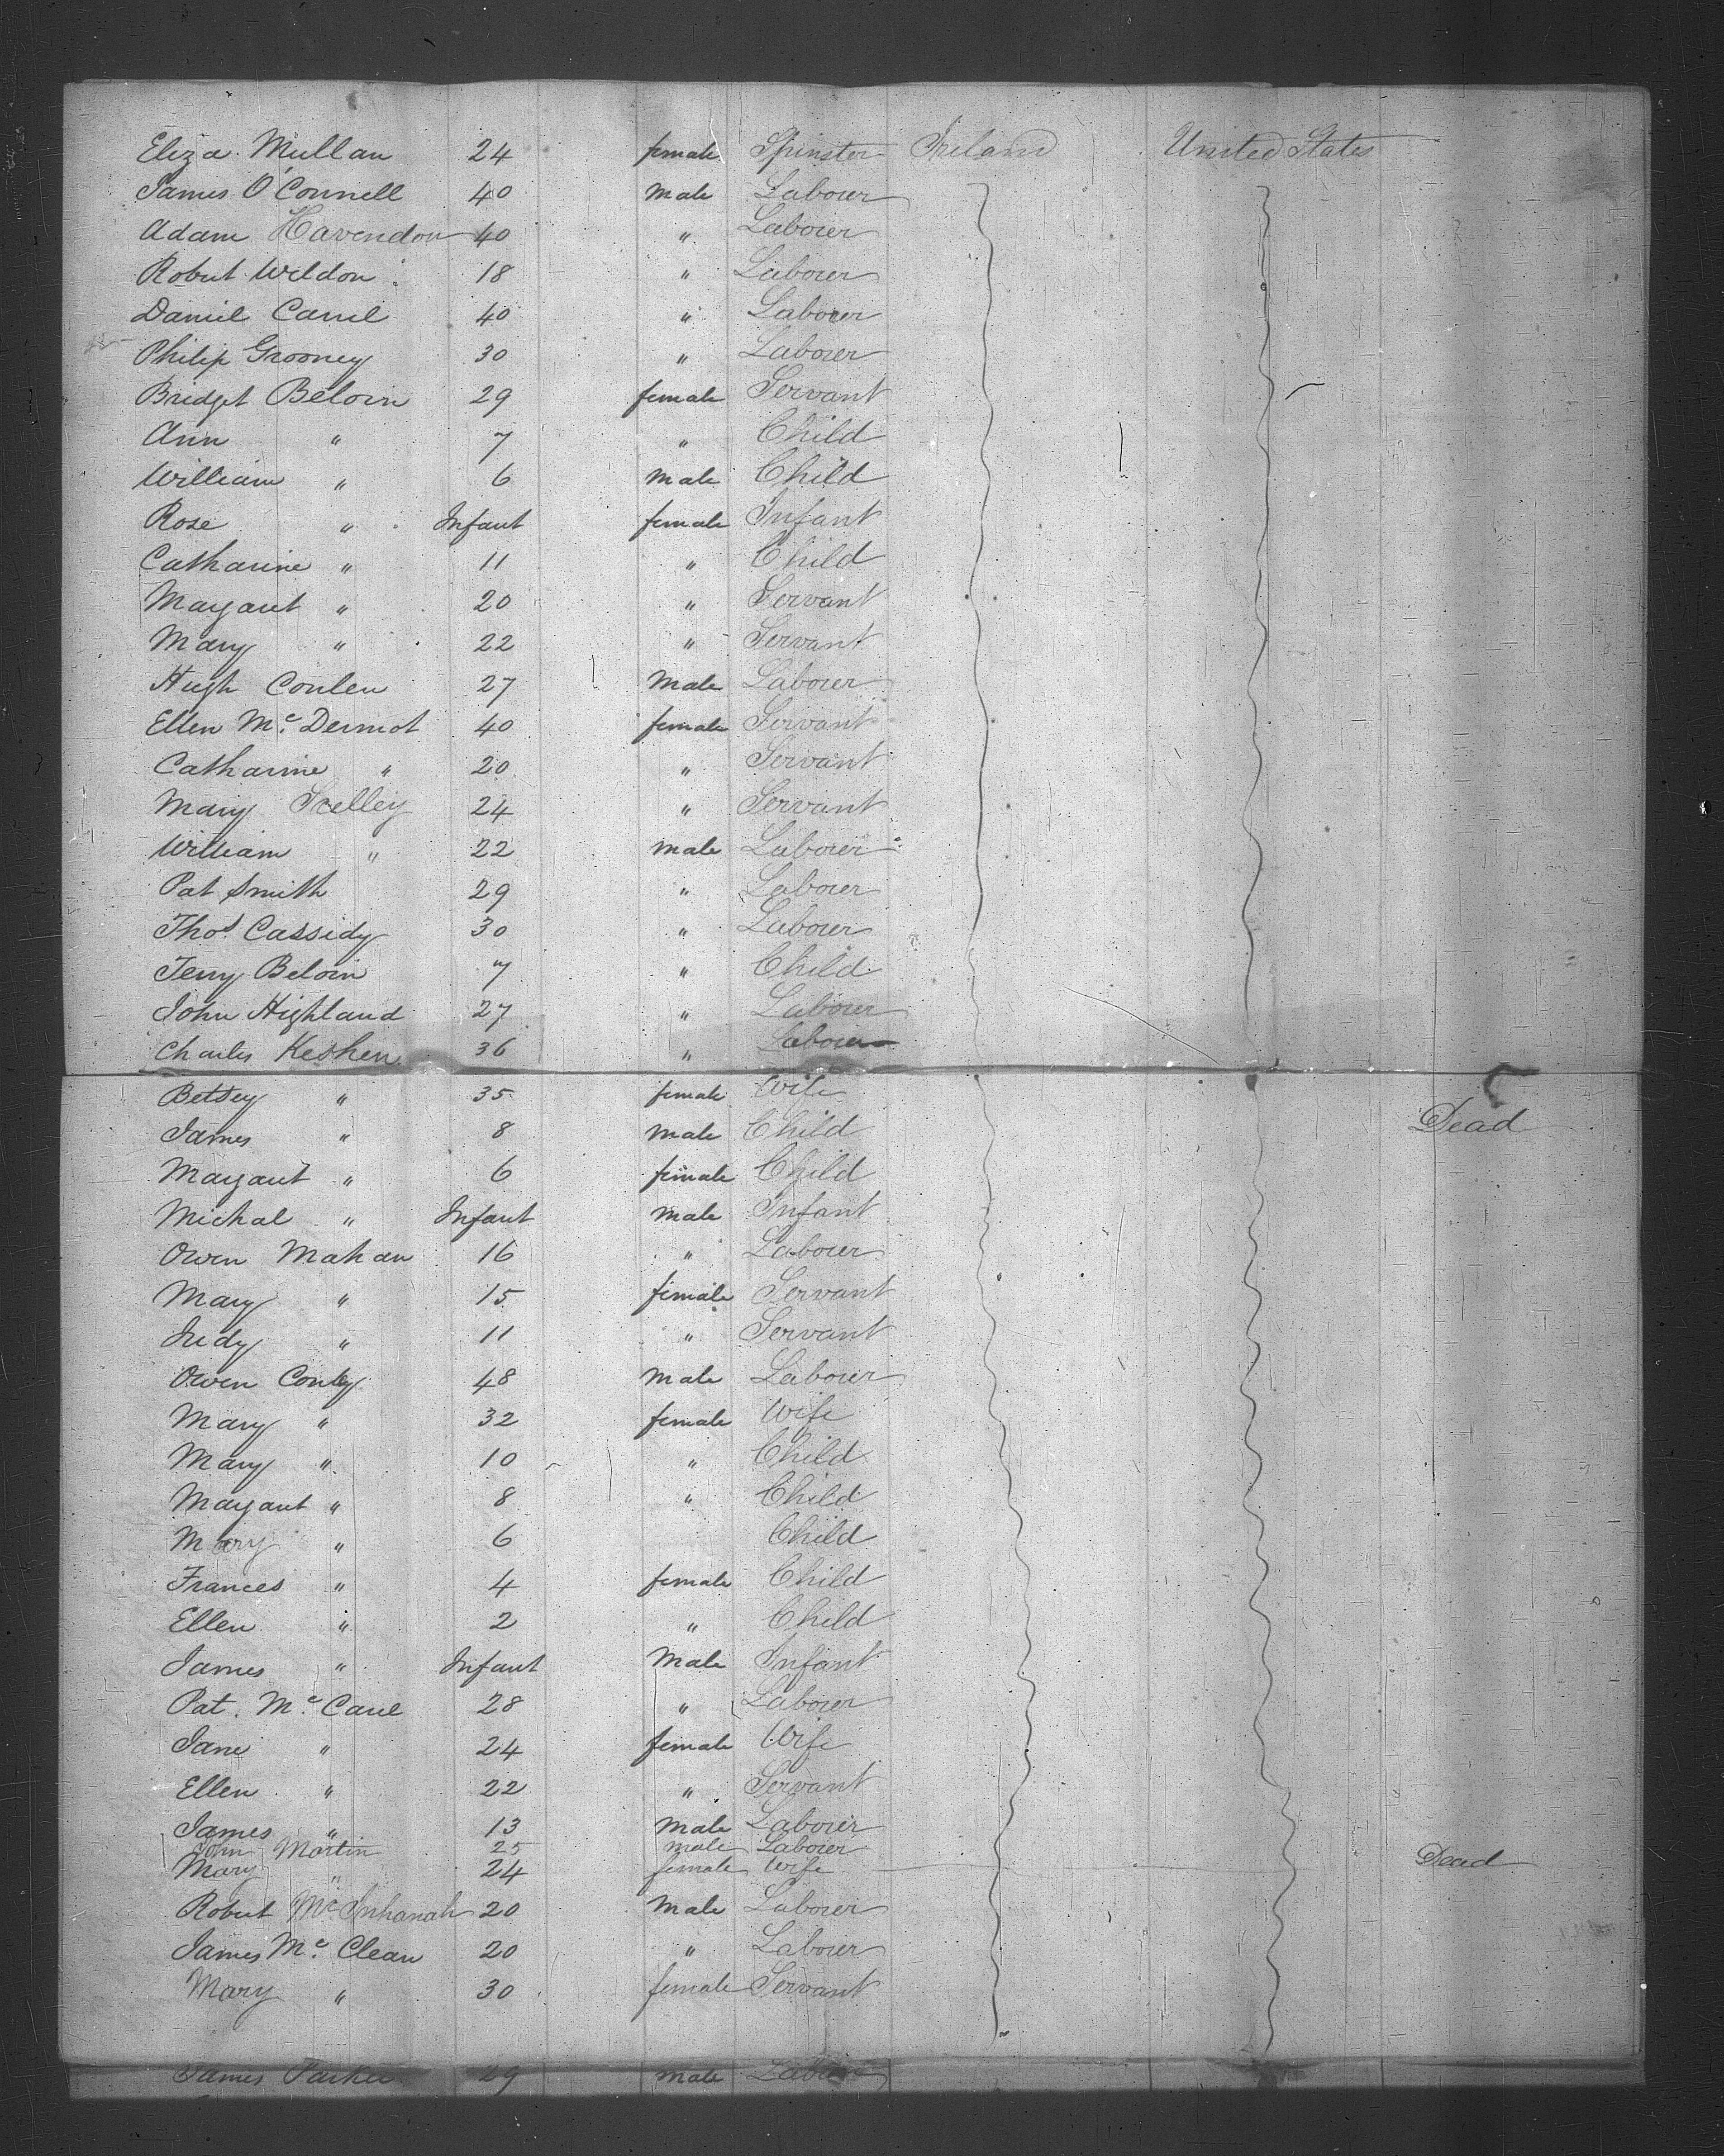 Eliza Mullan 24 female Spinster Ireland United States
James O'Connell 40 Male Labourer
Adam Havendon 40 " Labourer
Robert Weldon 18 " Labourer
Daniel Carrel 40 " Labourer
Philip Grooney 30 " Labourer
Bridget Beloin 29 female Servant
Ann " 7 " Child
William " 6 Male Child
Rose " Infant female Infant
Catharine " 11 " Child
Margaret " 20 " Servant
Mary " 22 " Servant
Hugh Conlen 27 Male Labourer
Ellen Mc. Dermot 40 female Servant
Catharine " 20 " Servant
Mary 24 " Servant
William " 22 male Labourer
Pat Smith 29 " Labourer
Thos. Cassidy 30 " Labourer
Terry Beloin 7 " Child
John Highland 27 " Labourer
Charles Keshen 36 " Labourer
Betsey " 35 female Wife
James " 8 Male Child Dead
Margaret " 6 female Child
Michal " Infant Male Infant
Owen Mahan 16 " Labourer
Mary " 15 female Servant
Judy " 11 " Servant
Owen Conley 48 Male Labourer
Mary " 32 female Wife
Mary " 10 " Child
Margaret " 8 " Child
Mary " 6 Child
Frances " 4 female Child
Ellen " 2 " Child
James " Infant Male Infant
Pat. Mc. Carrel 28 " Labourer
Jane " 24 female Wife
Ellen " 22 " Servant
James " 13 Male Labourer
John Martin 25 male Labourer
Mary " 24 female Wife Dead
Robert 20 Male Labourer
James Mc. Clean 20 " Labourer
Mary " 30 female Servant
James Parker 29 Male Labourer